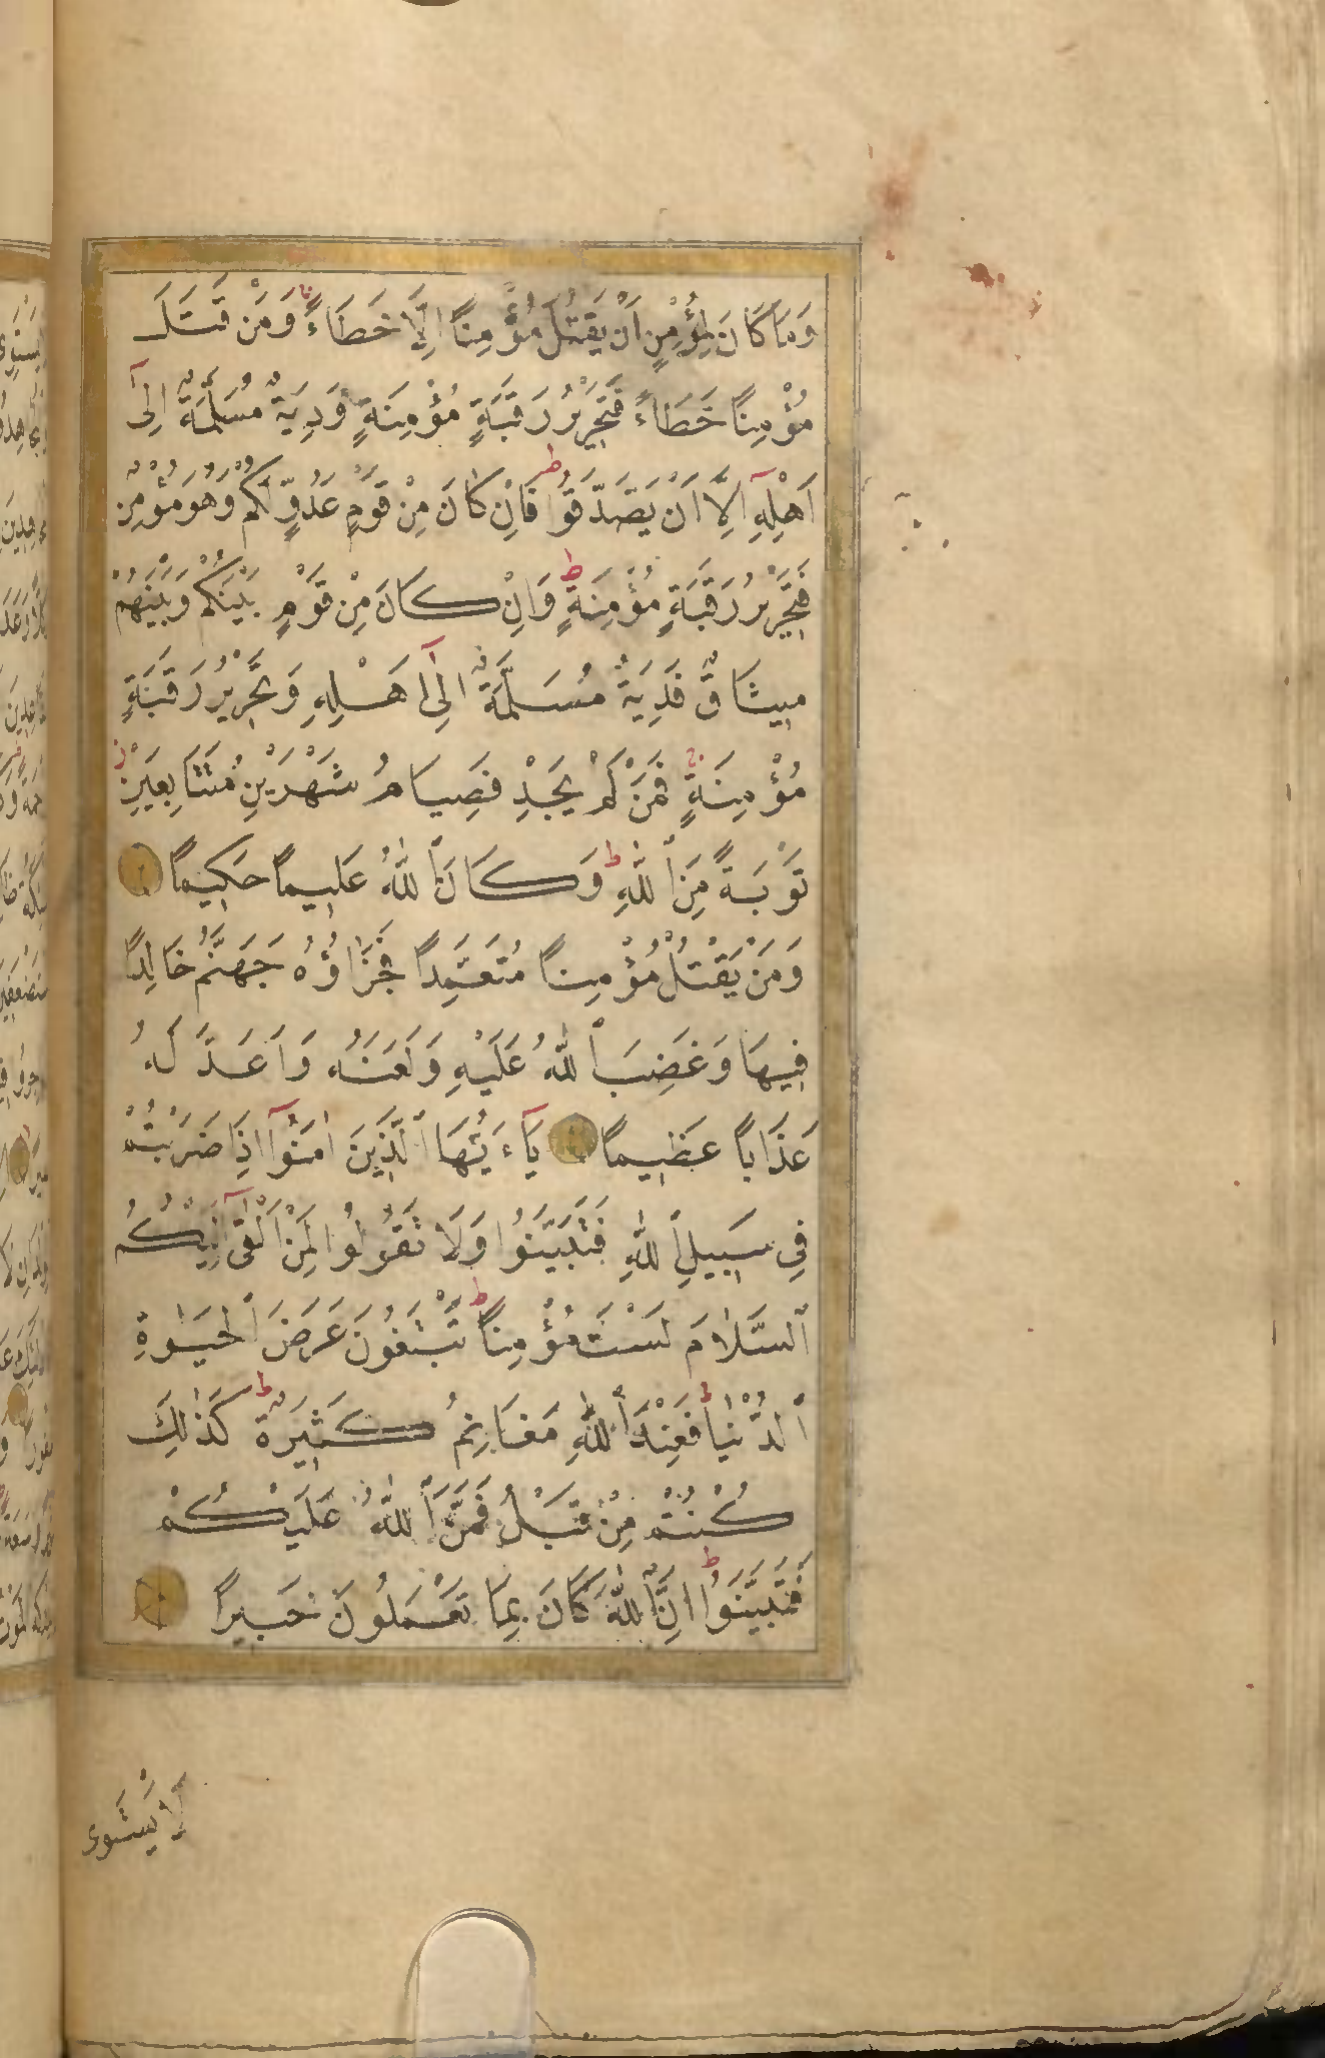 وَمَا كَانَ لِمُؤْمِنٍ اَنْ يَقْتُلَ مُؤْمِنًا اِلَّا خَطَاءً وَمَنْ قَتَلَ
مُؤْمِنًا خَطَاءً فَتَحْرِيرُ رَقَبَةٍ مُؤْمِنَةٍ وَدِيَةٌ مُسَلَّمَةٌ اِلٰٓى
اَهْلِهٖٓ اِلَّا اَنْ يَصَّدَّقُوا ط فَاِنْ كَانَ مِنْ قَوْمٍ عَدُوٍّ لَكُمْ وَهُوَ مُؤْمِنٌ
فَتَحْرِيرُ رَقَبَةٍ مُؤْمِنَةٍ ط وَاِنْ كَانَ مِنْ قَوْمٍ بَيْنَكُمْ وَبَيْنَهُمْ
مِيثَاقٌ فَدِيَةٌ مُسَلَّمَةٌ اِلٰٓى اَهْلِهٖ وَتَحْرِيرُ رَقَبَةٍ
مُؤْمِنَةٍ فَمَنْ لَمْ يَجِدْ فَصِيَامُ شَهْرَيْنِ مُتَتَابِعَيْنِ
تَوْبَةً مِنَ ٱللّٰهِ ط وَكَانَ ٱللّٰهُ عَلِيمًا حَكِيمًا
وَمَنْ يَقْتُلْ مُؤْمِنًا مُتَعَمِّدًا فَجَزَاؤُهُ جَهَنَّمُ خَالِدًا
فِيهَا وَغَضِبَ ٱللّٰهُ عَلَيْهِ وَلَعَنَهُ وَاَعَدَّ لَهُ
عَذَابًا عَظِيمًا يَآءَيُّهَا ٱلَّذِينَ اٰمَنُوٓا اِذَا ضَرَبْتُمْ
فِي سَبِيلِ ٱللّٰهِ فَتَبَيَّنُوا وَلَا تَقُولُوا لِمَنْ اَلْقٰٓى اِلَيْكُمُ
ٱلسَّلَامَ لَسْتَ مُؤْمِنًا ط تَبْتَغُونَ عَرَضَ ٱلْحَيٰوةِ
ٱلدُّنْيَا ط فَعِنْدَ ٱللّٰهِ مَغَانِمُ كَثِيرَةٌ ط كَذٰلِكَ
كُنْتُمْ مِنْ قَبْلُ فَمَنَّ ٱللّٰهُ عَلَيْكُمْ
فَتَبَيَّنُوا ط اِنَّ ٱللّٰهَ كَانَ بِمَا تَعْمَلُونَ خَبِيرًا
لَا يَسْتَوِى